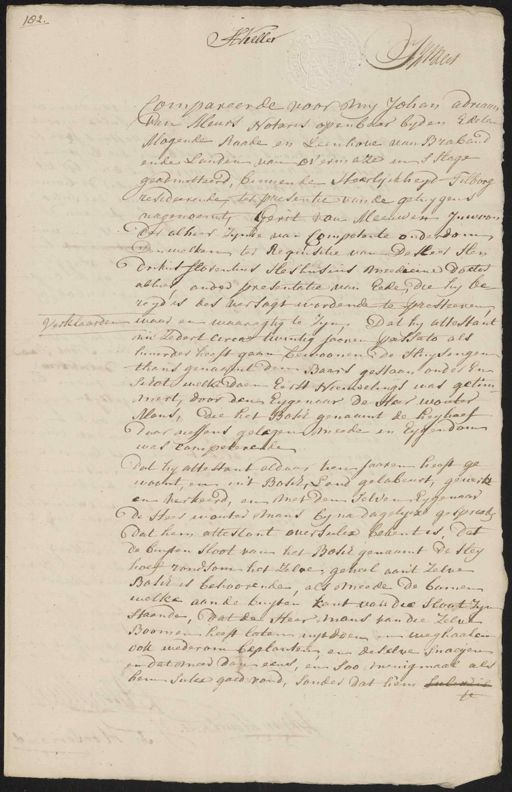 182.
Compareerde voor mij Johan adriaan
van Meurs Notaris openbaar bij den Edele
Mogende Raade en Leenhove van Braband
ende Landen van Overmaze in 's Hage
geadmitteerd, binnen de Heerlijckheijd Tilborg
resideerende, ter presentie van de getuijgen
nagenoemt, Gerit van Meeuwen Inwoon
der alhier zijnde van Competente ouderdom
Dewelke ter Requisitie van De Heer Hen
drikus florentius Medecine Docter
alhier, onder presentatie van Eede, die hij be
reijd is des versogt wordende te presteeren,
Verklaarden waar en waaragtig te zijn, Dat hij attestant
nu Ledert Circa twintig Jaaren passato als
huurder heeft gaan bewoonen de
thans genaamt den Baars gestaan onder En
schot welk doen Eerst Nieuwelings was getim
mert, door den Eijgenaar De Heer wouter
Mans, Die het Bosch genaamt de
daar nessens gelegen, meede in Eijgendom
was Competeerende
Dat hij attestant aldaar Jaaren heeft ge
woont, en uit Bosch, Land gelabeurt, gewerkt
en verkeerd, en met den selven Eijgenaar
de Heer wouter Mans bijna dagelijx gesprooken
dat hem attestant oversulx bekent is, Dat
de buijten sloot van het Bosch genaamt de Heij
hoef rondsom het zelve, geheel aan't zelve
Bosch is behoorende, als meede De boomen
welke aan de buijten kant van die sloot zijn
staande, Dat de Heer Mans van die zelve
Boomen heeft laten uijtdoen en weghaalen
ook wederom beplanten, en deselve snoeijen
en dat meer dan eens, en soo menigmaal als
hem sulx goed vond, sonder dat hem